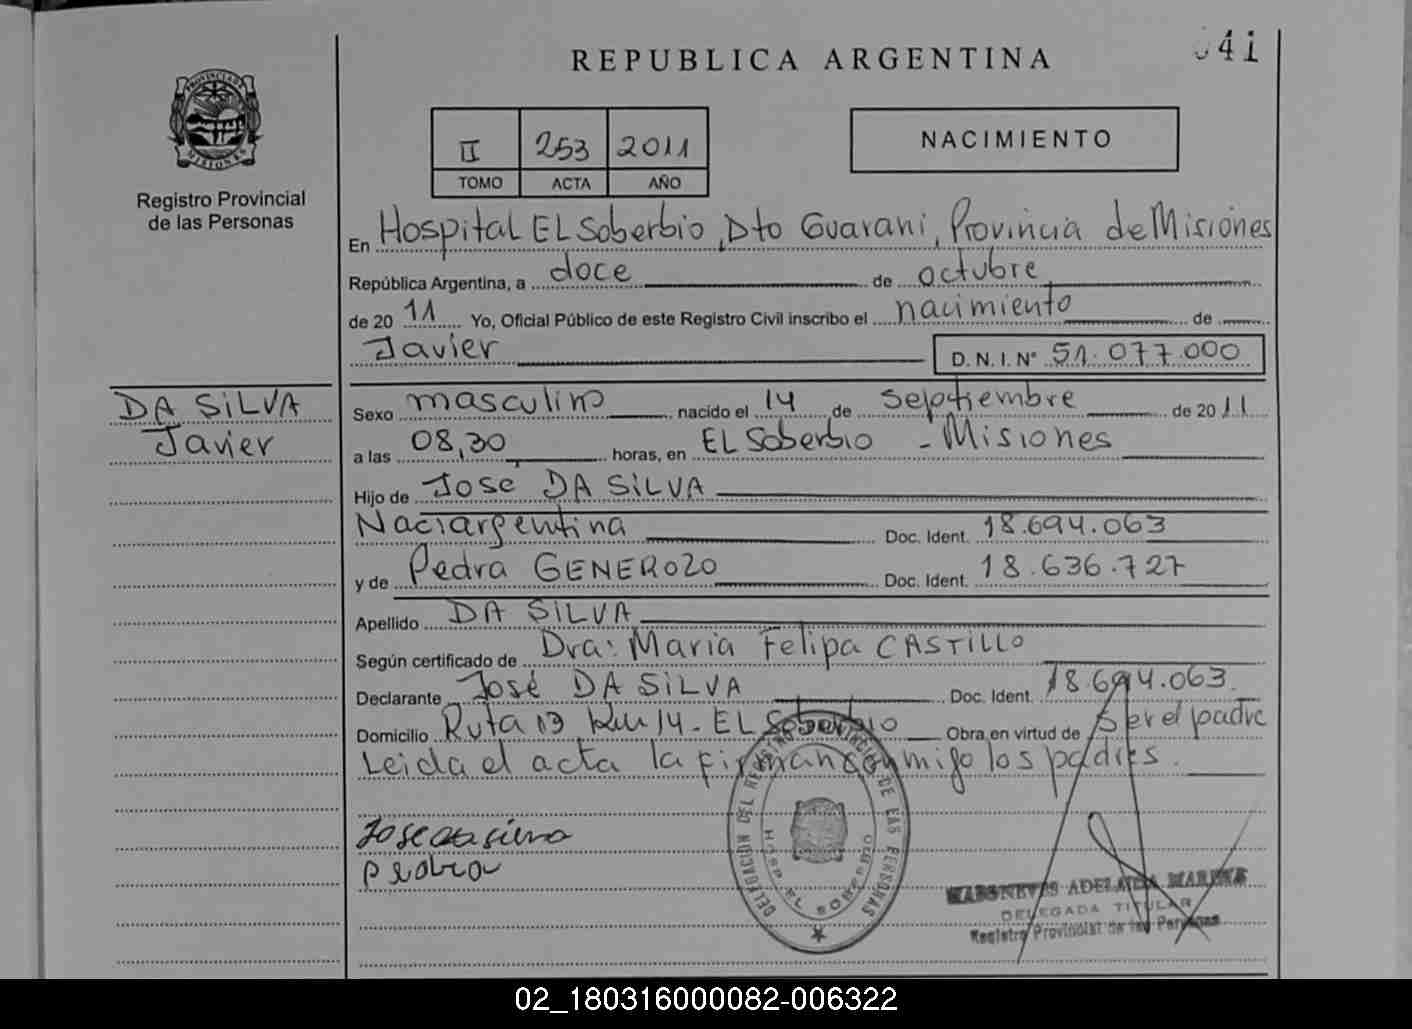 041
REPUBLICA ARGENTINA
PROVINCIA DE MISIONES
Registro Provincial
de las Personas
II 253 2011
TOMO ACTA AÑO
NACIMIENTO
En Hospital EL Soberbio, Dto Guarani, Provincia de Misiones
República Argentina, a doce de octubre
de 2011 Yo, Oficial Público de este Registro Civil inscribo el nacimiento de
Javier D.N.I. Nº 51.077.000
DA SILVA
Javier
Sexo masculino nacido el 14 de Septiembre de 2011
a las 08,30 horas, en EL Soberbio - Misiones
Hijo de Jose DA SILVA
Naciargentina Doc. Ident. 18.694.063
y de Pedra GENEROZO Doc. Ident. 18.636.727
Apellido DA SILVA
Según certificado de Dra: Maria Felipa CASTILLO
Declarante José DA SILVA Doc. Ident. 18.694.063.
Domicilio Ruta 13 Km 14 - EL Soberbio Obra en virtud de Ser el padre
Leida el acta la firman conmigo los padres.
Jose da silva
pedra
DELEGACION DEL REGISTRO PROVINCIAL DE LAS PERSONAS
HOSP. EL SOBERBIO
ADELAIDA
DELEGADA TITULAR
Registro Provincial de las Personas
02_180316000082-006322